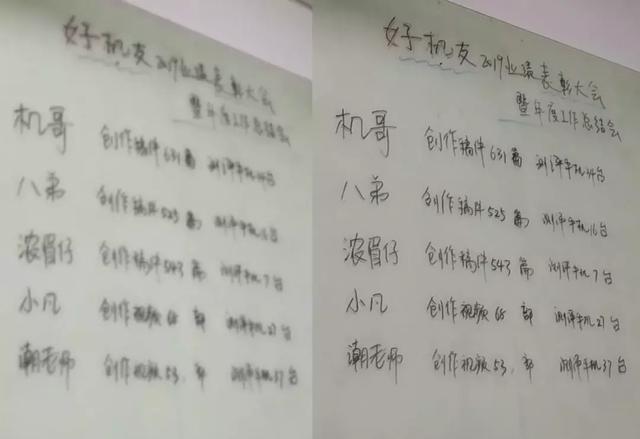 好机友2019业绩表彰大会
暨年度工作总结会
机哥 创作稿件631篇 测评手机34台
八弟 创作稿件525篇 测评手机16台
浓眉仔 创作稿件543篇 测评手机7台
小凡 创作视频68部 测评手机27台
潮老师 创作视频53部 测评手机37台
好机友2019业绩表彰大会
暨年度工作总结会
机哥 创作稿件631篇 测评手机34台
八弟 创作稿件525篇 测评手机16台
浓眉仔 创作稿件543篇 测评手机7台
小凡 创作视频68部 测评手机27台
潮老师 创作视频53.部 测评手机37台